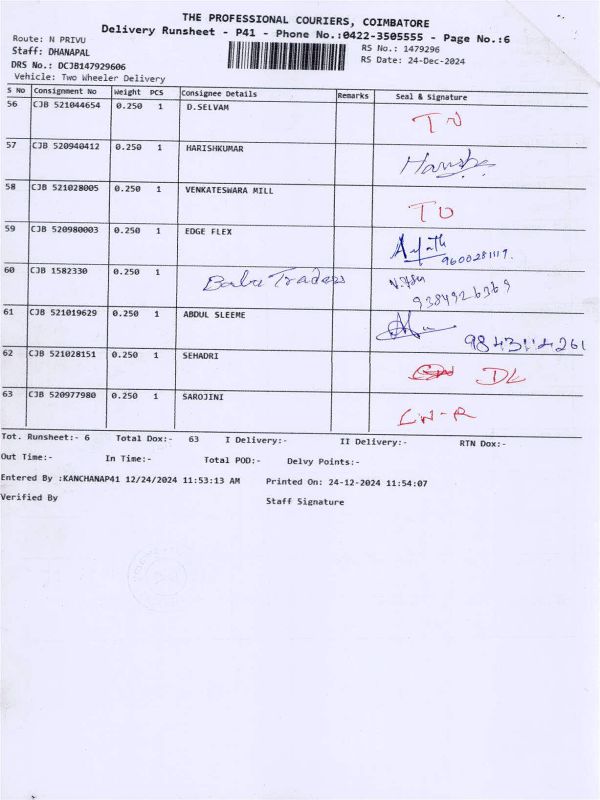 THE PROFESSIONAL COURIERS, COIMBATORE
Delivery Runsheet - P41 - Phone No.:0422-3505555 - Page No.:6
Route: N PRIVU
RS No.: 1479296
Staff: DHANAPAL
RS Date: 24-Dec-2024
DRS No.: DCJB147929606
Vehicle: Two Wheeler Delivery
S No Consignment No Weight PCS Consignee Details Remarks Seal & Signature
56 CJB 521044654 0.250 1 D.SELVAM
57 CJB 520940412 0.250 1 HARISHKUMAR
58 CJB 521028005 0.250 1 VENKATESWARA MILL
59 CJB 520980003 0.250 1 EDGE FLEX 9600281119.
60 CJB 1582330 0.250 1 Babu Traders 9384926369
61 CJB 521019629 0.250 1 ABDUL SLEEME 9843114261
62 CJB 521028151 0.250 1 SEHADRI DL
63 CJB 520977980 0.250 1 SAROJINI
Tot. Runsheet:- 6 Total Dox:- 63 I Delivery:- II Delivery:- RTN Dox:-
Out Time:- In Time:- Total POD:- Delvy Points:-
Entered By :KANCHANAP41 12/24/2024 11:53:13 AM Printed On: 24-12-2024 11:54:07
Verified By Staff Signature